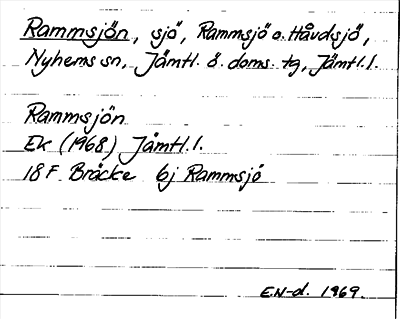 Rammsjön, sjö, Rammsjö o. Håvdsjö,
Nyhems sn, Jämtl. ö. doms. tg, Jämtl. l.
Rammsjön
Ek (1968) Jämtl. l.
18 F Bräcke bj Rammsjö
E.N-d. 1969.